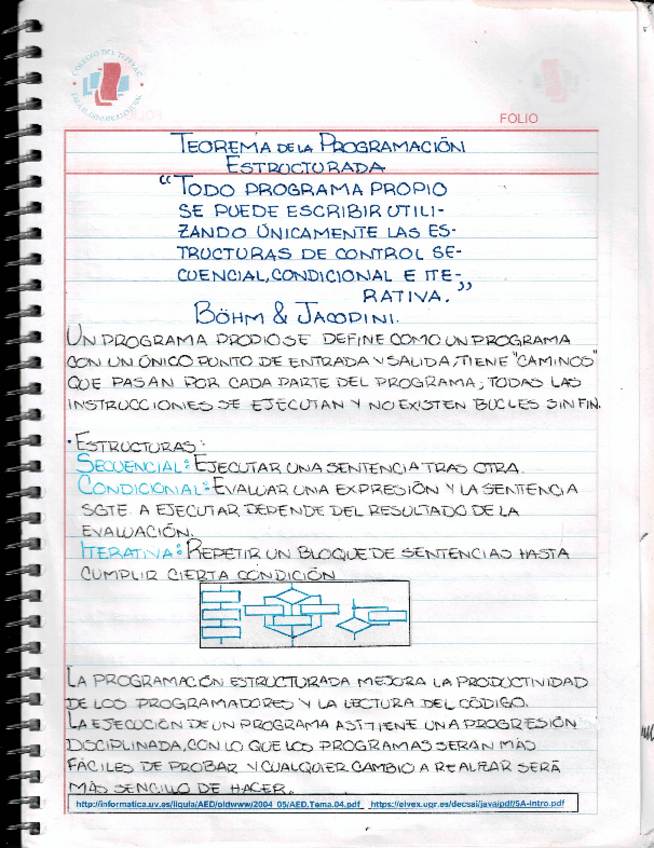 COLEGIO DEL TEPEYAC
FOLIO
TEOREMA DE LA PROGRAMACIÓN
ESTRUCTURADA
“TODO PROGRAMA PROPIO
SE PUEDE ESCRIBIR UTILI-
ZANDO ÚNICAMENTE LAS ES-
TRUCTURAS DE CONTROL SE-
CUENCIAL, CONDICIONAL E ITE-
RATIVA.”
BÖHM & JACOPINI.
UN PROGRAMA PROPIO SE DEFINE COMO UN PROGRAMA
CON UN ÚNICO PUNTO DE ENTRADA Y SALIDA, TIENE "CAMINOS"
QUE PASAN POR CADA PARTE DEL PROGRAMA, TODAS LAS
INSTRUCCIONES SE EJECUTAN Y NO EXISTEN BUCLES SIN FIN.
• ESTRUCTURAS:
SECUENCIAL: EJECUTAR UNA SENTENCIA TRAS OTRA.
CONDICIONAL: EVALUAR UNA EXPRESIÓN Y LA SENTENCIA
SGTE. A EJECUTAR DEPENDE DEL RESULTADO DE LA
EVALUACIÓN.
ITERATIVA: REPETIR UN BLOQUE DE SENTENCIAS HASTA
CUMPLIR CIERTA CONDICIÓN
LA PROGRAMACIÓN ESTRUCTURADA MEJORA LA PRODUCTIVIDAD
DE LOS PROGRAMADORES Y LA LECTURA DEL CÓDIGO.
LA EJECUCIÓN DE UN PROGRAMA ASÍ TIENE UNA PROGRESIÓN
DISCIPLINADA, CON LO QUE LOS PROGRAMAS SERÁN MÁS
FÁCILES DE PROBAR Y CUALQUIER CAMBIO A REALIZAR SERÁ
MÁS SENCILLO DE HACER.
http://informatica.uv.es/iiguia/AED/oldwww/2004_05/AED.Tema.04.pdf https://elvex.ugr.es/decsai/java/pdf/5A-Intro.pdf